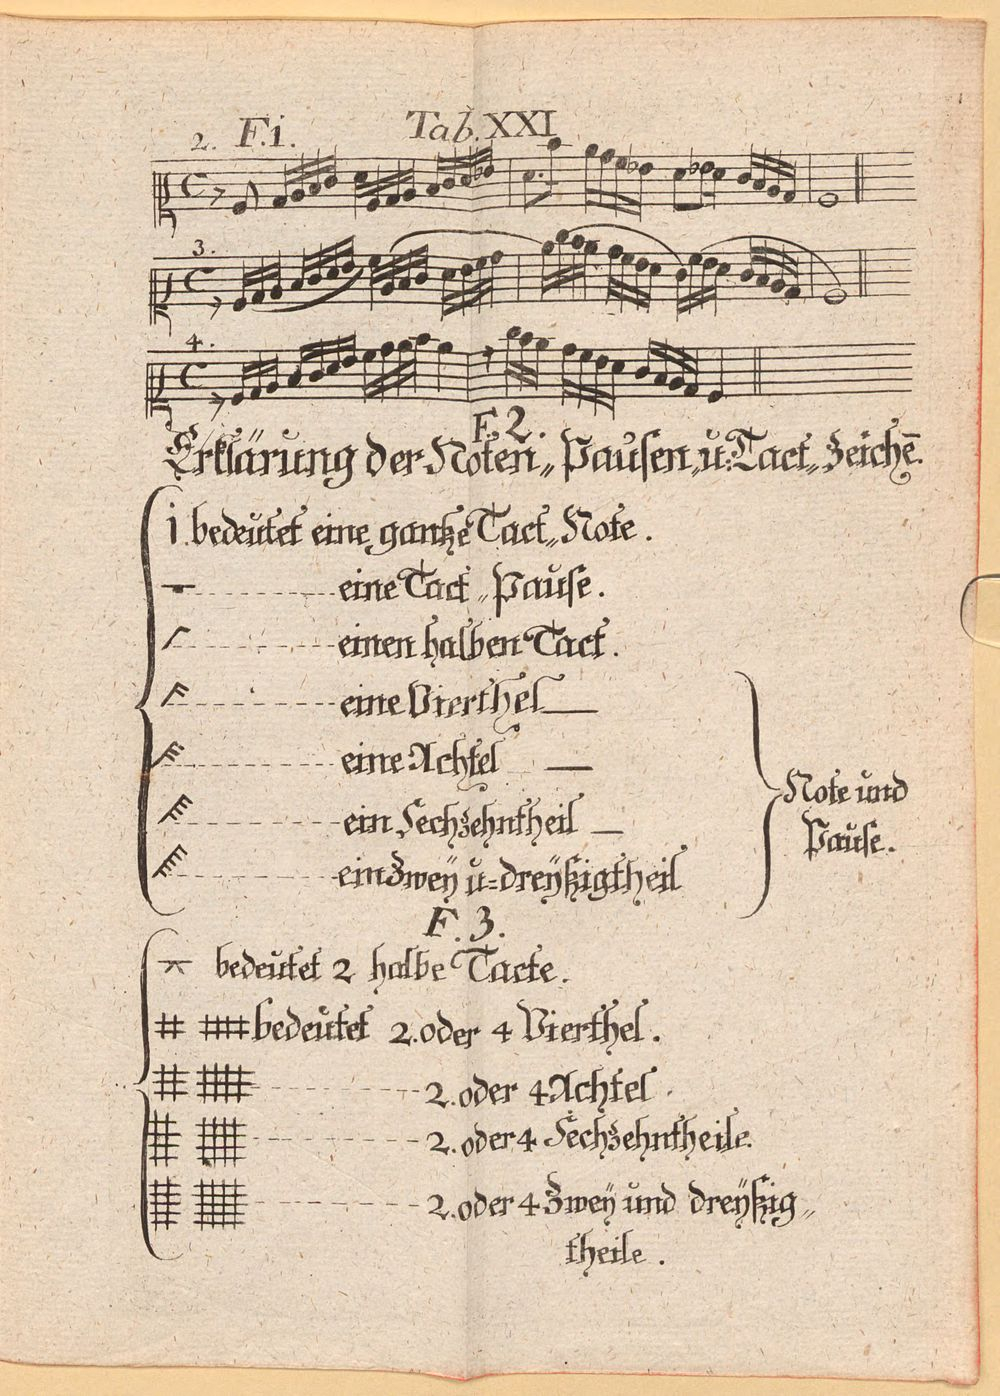 Tab. XXI
2. F.1.
3.
4.
F. 2.
Erklärung der Noten„ Pausen„ ŭ: Tact„ Zeichē.
1 bedeŭtet eine gantze Tact„ Note.
eine Tact„ Paŭse.
einen halben Tact.
eine Vierthel —
eine Achtel —
ein Sechzehntheil —
ein Zweÿ ŭ= dreÿßigtheil
Note ŭnd
Paŭse.
F. 3.
bedeŭtet 2 halbe Tacte.
bedeŭtet 2. oder 4 Vierthel.
2. oder 4 Achtel.
2. oder 4 Sechzehntheile.
2. oder 4 Zweÿ ŭnd dreÿßig„
theile.